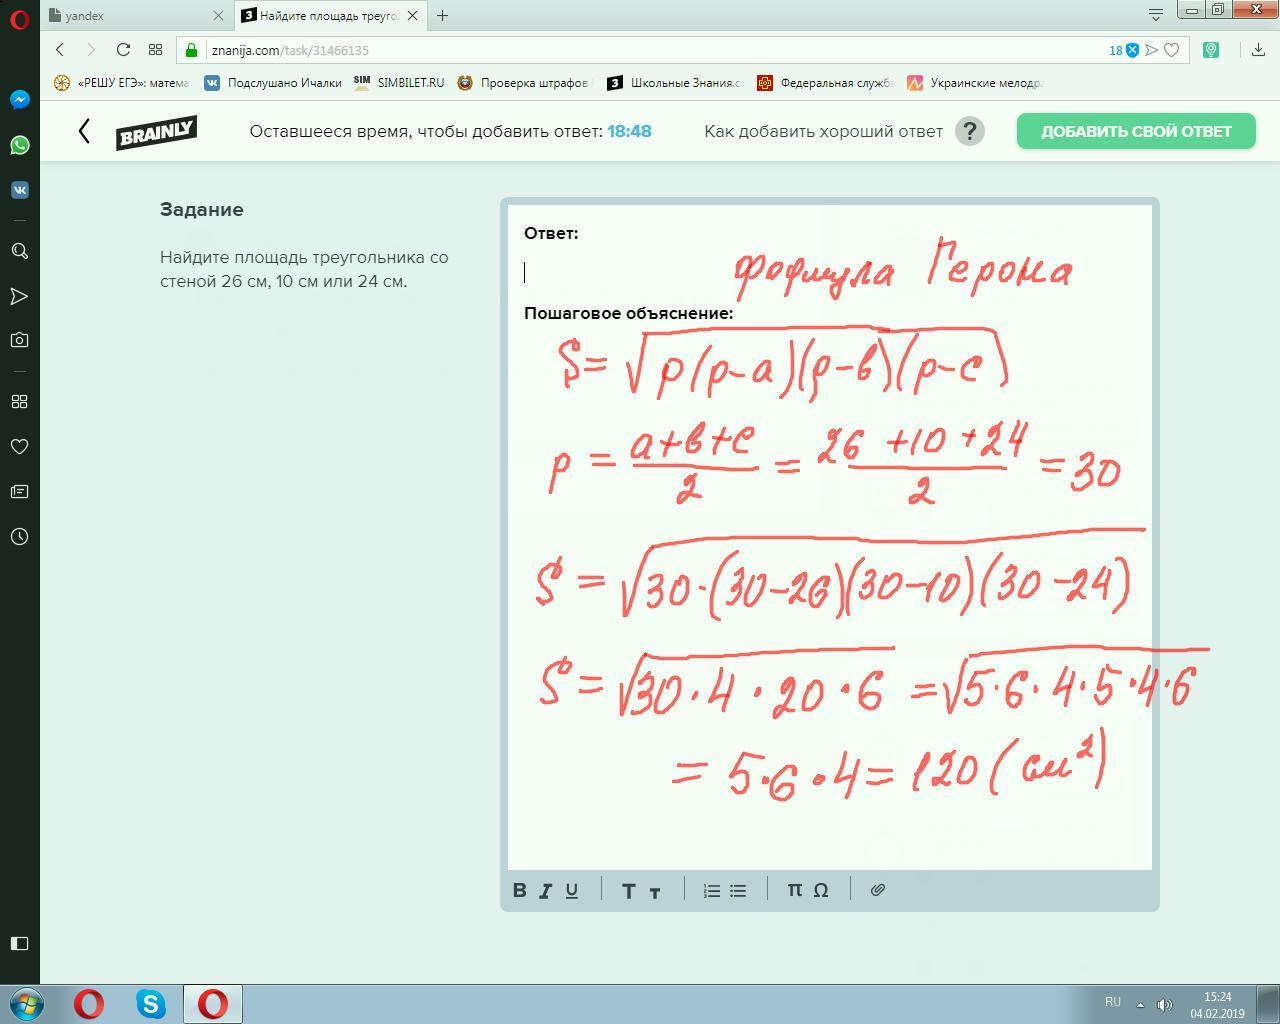 yandex
Найдите площадь треуго
znanija.com/task/31466135
18
«РЕШУ ЕГЭ»: матема
Подслушано Ичалки
SIM
SIMBILET.RU
Проверка штрафов
Школьные Знания.co
Федеральная служба
Украинские мелодра
BRAINLY
Оставшееся время, чтобы добавить ответ: 18:48
Как добавить хороший ответ ?
ДОБАВИТЬ СВОЙ ОТВЕТ
Задание
Найдите площадь треугольника со
стеной 26 см, 10 см или 24 см.
Ответ:
формула Герона
Пошаговое объяснение:
S = √p(p-a)(p-в)(p-c)
p = a+в+c/2 = 26+10+24/2 = 30
S = √30·(30-26)(30-10)(30-24)
S = √30·4·20·6 = √5·6·4·5·4·6
= 5·6·4 = 120 (см²)
B I U T т π Ω
RU
15:24
04.02.2019